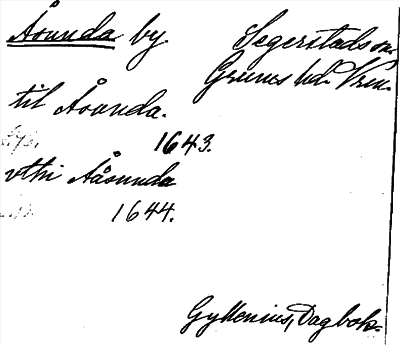 Åsunda by Segerstads sn.
Grums hd. Vrm.
til Åsunda.
1643.
vthi Ååsunda
1644.
Gyllenius, Dagbok.